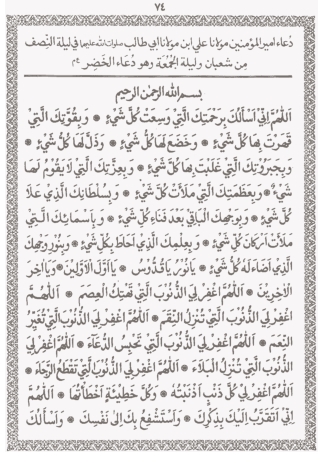 ٧٤
دُعاء امير المؤمنين مولانا علي ابن مولانا ابي طالب صلوات الله عليهما في ليلة النّصف
مِن شعبان وليلة الجُمْعَة وهو دُعاء الخَضِر ع م
بسم الله الرحمن الرحيم
اَللّٰهُمَّ اِنِّيْ اَسْأَلُكَ بِرَحْمَتِكَ الَّتِيْ وَسِعَتْ كُلَّ شَيْءٍ * وَبِقُوَّتِكَ الَّتِيْ
قَهَرْتَ بِهَا كُلَّ شَيْءٍ * وَخَضَعَ لَهَا كُلُّ شَيْءٍ * وَذَلَّ لَهَا كُلُّ شَيْءٍ *
وَبِجَبَرُوْتِكَ الَّتِيْ غَلَبْتَ بِهَا كُلَّ شَيْءٍ * وَبِعِزَّتِكَ الَّتِيْ لَا يَقُوْمُ لَهَا
شَيْءٌ * وَبِعَظَمَتِكَ الَّتِيْ مَلَأَتْ كُلَّ شَيْءٍ * وَبِسُلْطَانِكَ الَّذِيْ عَلَا
كُلَّ شَيْءٍ * وَبِوَجْهِكَ الْبَاقِيْ بَعْدَ فَنَاءِ كُلِّ شَيْءٍ * وَبِاَسْمَائِكَ الَّتِيْ
مَلَأَتْ اَرْكَانَ كُلِّ شَيْءٍ * وَبِعِلْمِكَ الَّذِيْ اَحَاطَ بِكُلِّ شَيْءٍ * وَبِنُوْرِ وَجْهِكَ
الَّذِيْ اَضَاءَ لَهُ كُلُّ شَيْءٍ * يَا نُوْرُ يَا قُدُّوْسُ * يَا اَوَّلَ الْاَوَّلِيْنَ * وَيَا اٰخِرَ
الْاٰخِرِيْنَ * اَللّٰهُمَّ اغْفِرْ لِيَ الذُّنُوْبَ الَّتِيْ تَهْتِكُ الْعِصَمَ * اَللّٰهُمَّ
اغْفِرْ لِيَ الذُّنُوْبَ الَّتِيْ تُنْزِلُ النِّقَمَ * اَللّٰهُمَّ اغْفِرْ لِيَ الذُّنُوْبَ الَّتِيْ تُغَيِّرُ
النِّعَمَ * اَللّٰهُمَّ اغْفِرْ لِيَ الذُّنُوْبَ الَّتِيْ تَحْبِسُ الدُّعَاءَ * اَللّٰهُمَّ اغْفِرْ لِيَ
الذُّنُوْبَ الَّتِيْ تُنْزِلُ الْبَلَاءَ * اَللّٰهُمَّ اغْفِرْ لِيَ الذُّنُوْبَ الَّتِيْ تَقْطَعُ الرَّجَاءَ *
اَللّٰهُمَّ اغْفِرْ لِيْ كُلَّ ذَنْبٍ اَذْنَبْتُهُ * وَكُلَّ خَطِيْئَةٍ اَخْطَأْتُهَا * اَللّٰهُمَّ
اِنِّيْ اَتَقَرَّبُ اِلَيْكَ بِذِكْرِكَ * وَاَسْتَشْفِعُ بِكَ اِلٰى نَفْسِكَ * وَاَسْأَلُكَ